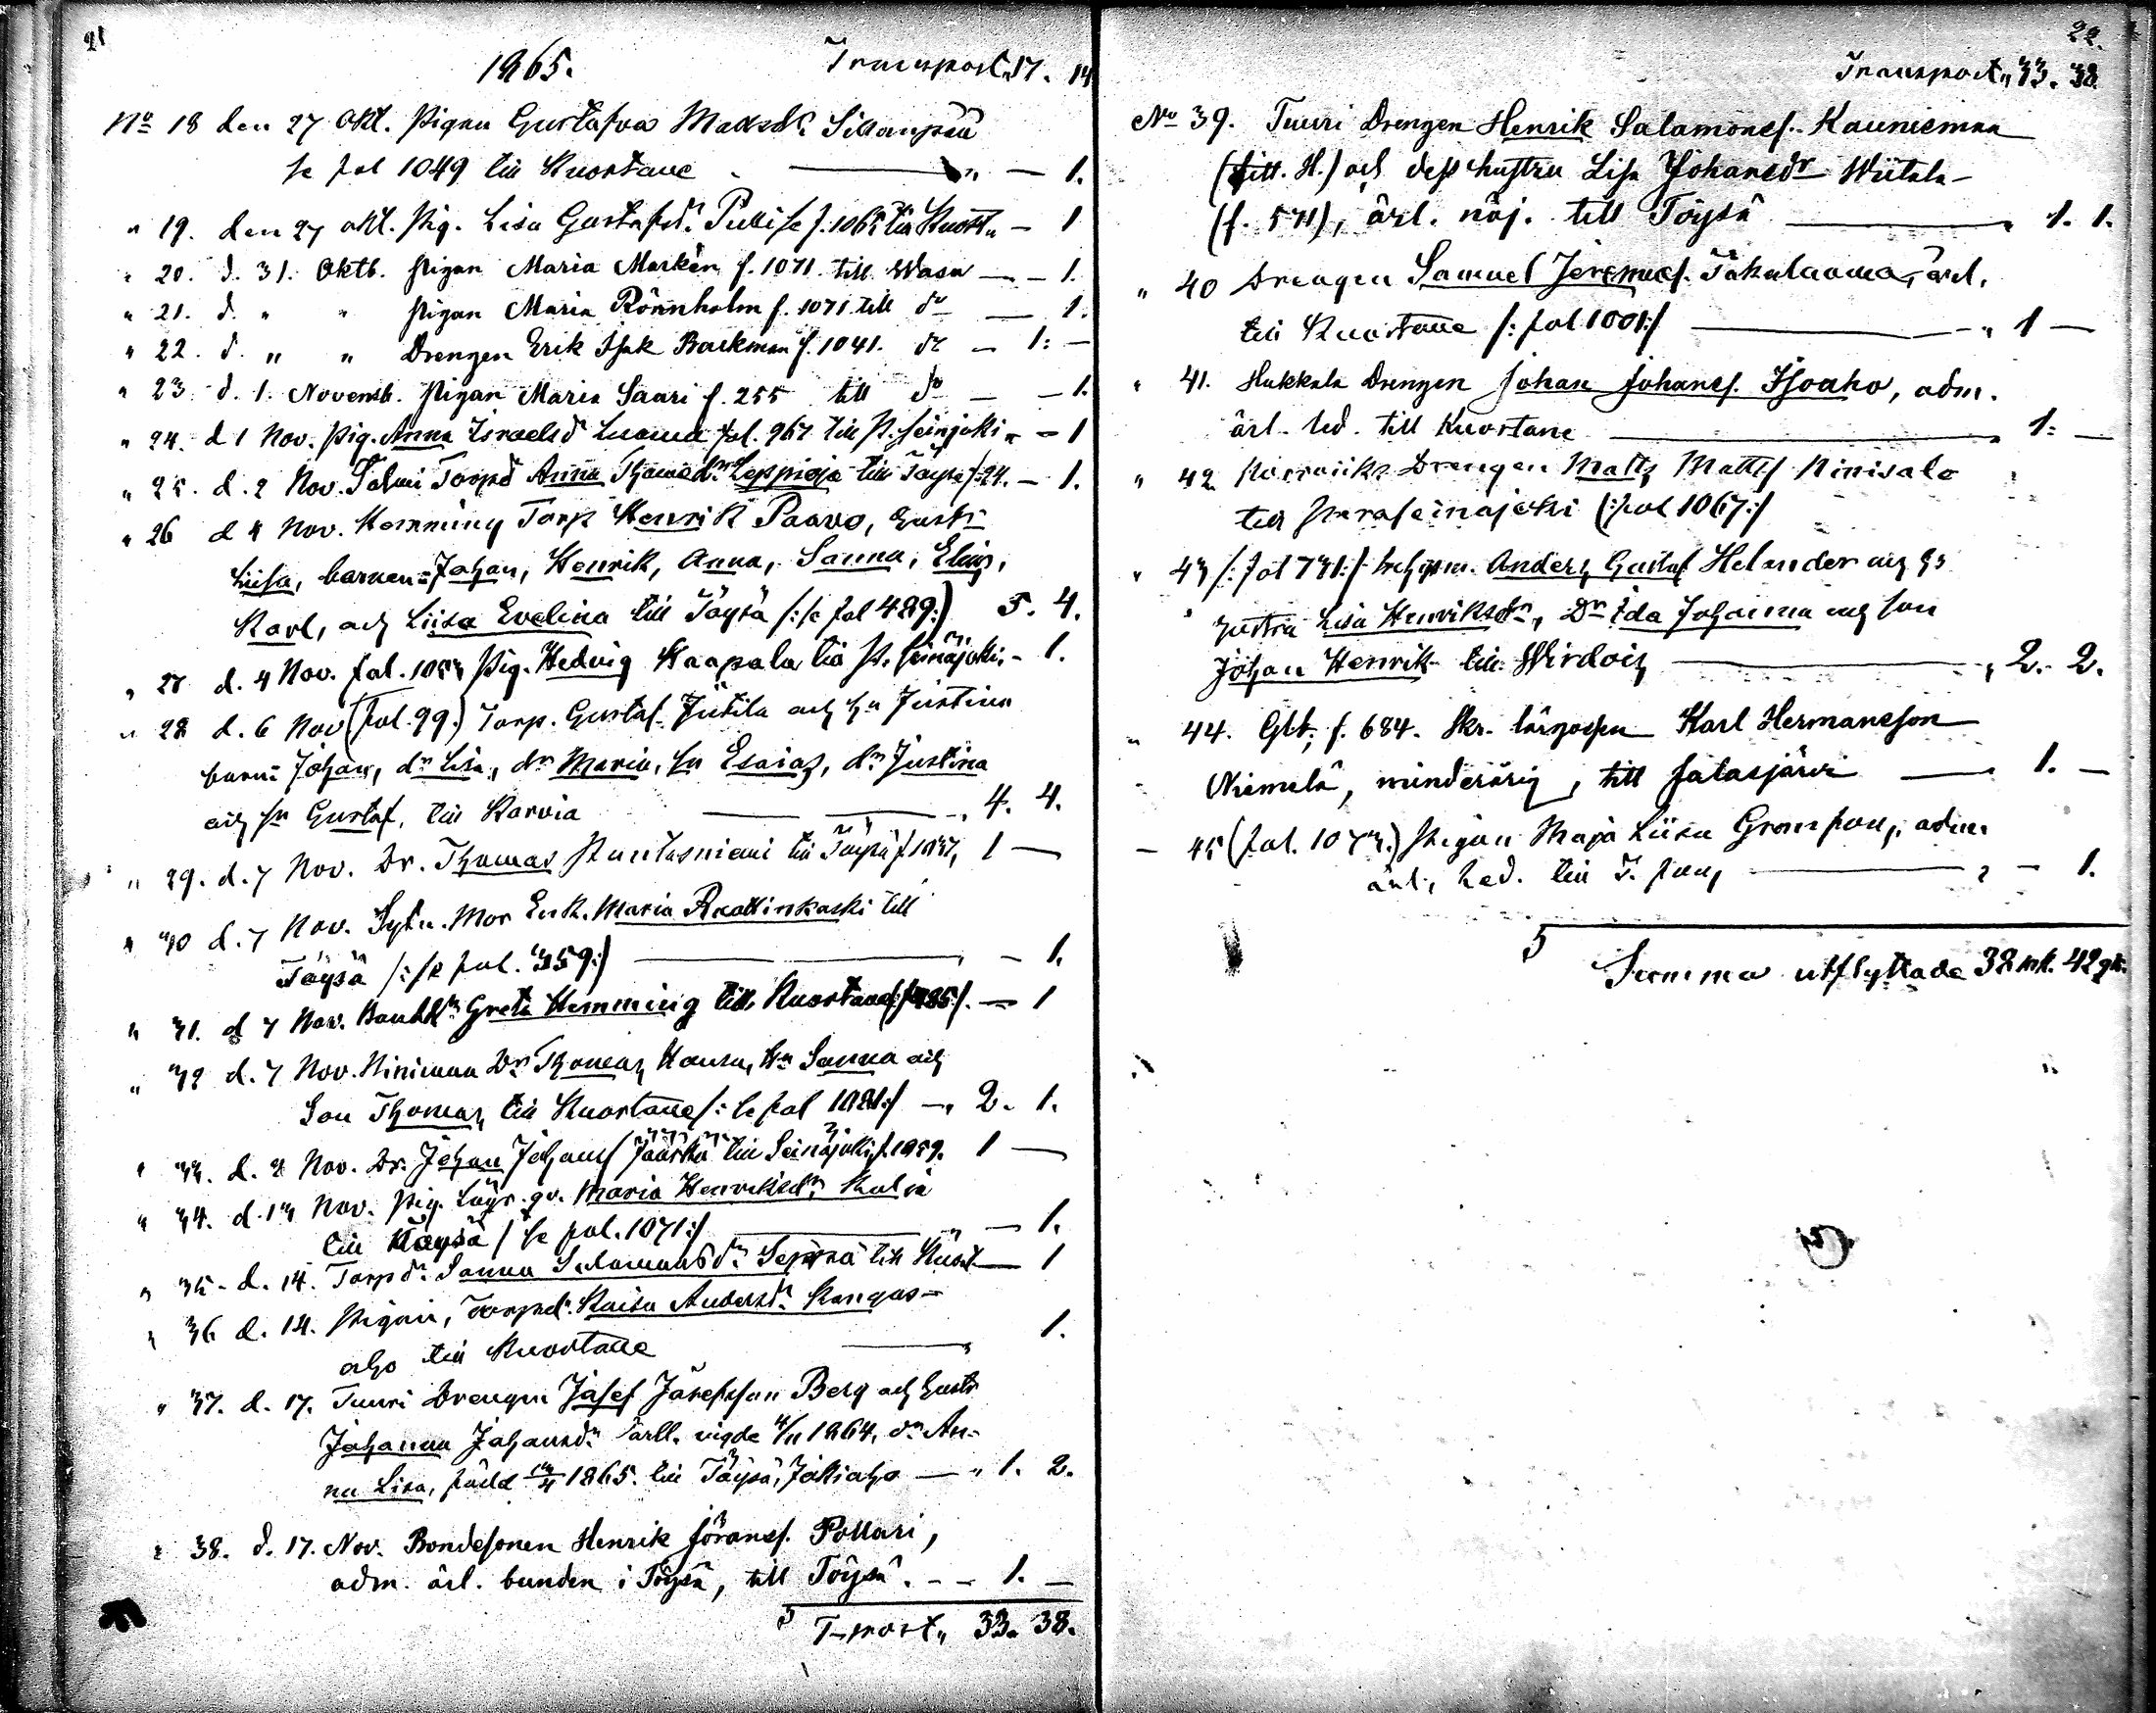 21
1865. Transport „ 17. 14
No 18 den 27 Okt. Pigan Gustafva Matsdr Sillanpää
se fol 1049 till Kuortane — „ — 1.
„ 19. den 27 okt. Pig. Lisa Gustafsdr. Pulli se f. 1065 till Kuort. „ — 1
„ 20. d. 31. Oktb. Pigan Maria Markén f. 1071 till Wasa — — 1.
„ 21. d. „ „ Pigan Maria Rönnholm f. 1071 till do — 1.
„ 22. d. „ „ Drengen Erik Isak Backman f. 1041. do — 1: —
„ 23 d. 1. Novemb. Pigan Maria Saari f. 255 till do — — 1.
„ 24. d 1 Nov. Pig. Anna Israelsd Luoma fol. 967 till P. Seinjoki „ — 1
„ 25. d. 2 Nov. Salmi Torpd Anna Thomasdr Leppioja till Töysä f. 24. — 1.
„ 26 d 4 Nov. Hemming Torp Henrik Paavo, hustr
Liisa, barnen = Johan, Henrik, Anna, Sanna, Elias,
Karl, och Liisa Evelina till Töysä /: se fol 489:) 5. 4.
„ 27 d. 4 Nov. fol. 1053 Pig. Hedvig Haapala till P. Seinäjoki. — 1.
„ 28 d. 6 Nov (fol. 99.) Torp. Gustaf Jutila och h. Justina
barn: Johan, dr Lisa, dr Maria, sn Esaias, dr Justina
och sn Gustaf, till Karvia — — „ 4. 4.
„ 29. d. 7 Nov. Dr. Thomas Puntasniemi till Töysä f 1037, 1 —
„ 30 d. 7 Nov. Sytn. Mor Enk. Maria Ruottinkoski till
Töysä /: se fol. 359:) — — 1.
„ 31. d 7 Nov. Bondedr Greta Hemming till Kuortane (: f 485 :). — 1
„ 32 d. 7 Nov. Niniman Dr Thomas Hansu, Hu Sanna och
Son Thomas, till Kuortane /: se fol 1021:/ — „ 2. 1.
„ 33. d. 8 Nov. Dr. Johan Johansf Jääskä till Seinäjoki, f. 1059. 1 —
„ 34. d. 13 Nov. Pig. Maria Henriksdr Kulja
till Töysä / se fol. 1071:/ — — 1.
„ 35 - d. 14. Torpdr. Sanna Salomonsdr Seppä till Kuort — 1
„ 36 d. 14. Pigan, Torpdr. Kaisa Andersdr. Kangas-
aho till Kuortane — 1.
„ 37. d. 17. Tuuri Drengen Josef Josefsson Berg och hustr
Johanna Johansdr. ärl. vigde 4/11 1864, dr An-
na Lisa, född 1865. till Töysä, Jokiaho — „ 1. 2.
„ 38. d. 17. Nov. Bondesonen Henrik Göransf. Pollari,
adm. ärl. bunden i Töysä, till Töysä. — — 1. —
T—port „ 33. 38.
22.
Transport „ 33. 38.
No 39. Tuuri Drengen Henrik Salamonsf. Kauniemaa
(Litt. H.) och dess hustru Lisa Johansdr Wiitala
(f. 571), ärl. näj. till Töysä — „ 1. 1.
„ 40 Drengen Samuel Jeremiasf. Täkälaoma, ärl.
till Kuortane /: fol 1001:/ — „ 1 —
„ 41. Hukkala Drengen Johan Johansf. Isoaho, adm.
ärl. led. till Kuortane — „ 1: —
„ 42 Drengen Matts Mattsf Kinisalo
till Peraseinäjoki (: fol 1067:/
„ 43 /: fol 731:/ Anders Gustaf Helander och hs
hustru Lisa Henriksdr, Dr Ida Johanna och son
Johan Henrik till Wirdois — „ 2. 2.
„ 44. Gbt; f. 684. Skr. lärgossen Karl Hermansson
Niemelä, minderårig, till Jalasjärvi — 1. —
— 45 (fol. 1073.) Pigan Maja Liisa Gromfors, adm
ärl., led. till T. fors, — „ — 1.
Summa utflyttade 38 mk. 42 qk.